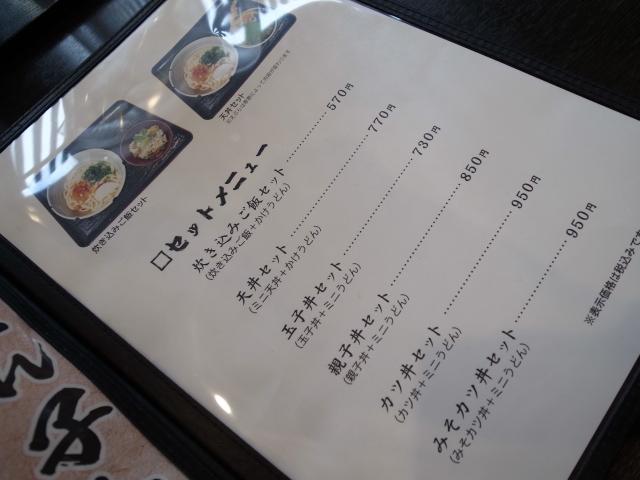 天丼セット
炊き込みご飯セット
□セットメニュー
炊き込みご飯セット………………570円
(炊き込みご飯+かけうどん)
天丼セット………………770円
(ミニ天丼+かけうどん)
玉子丼セット………………730円
(玉子丼+ミニうどん)
親子丼セット………………850円
(親子丼+ミニうどん)
カツ丼セット………………950円
(カツ丼+ミニうどん)
みそカツ丼セット………………950円
(みそカツ丼+ミニうどん)
※表示価格は税込みで